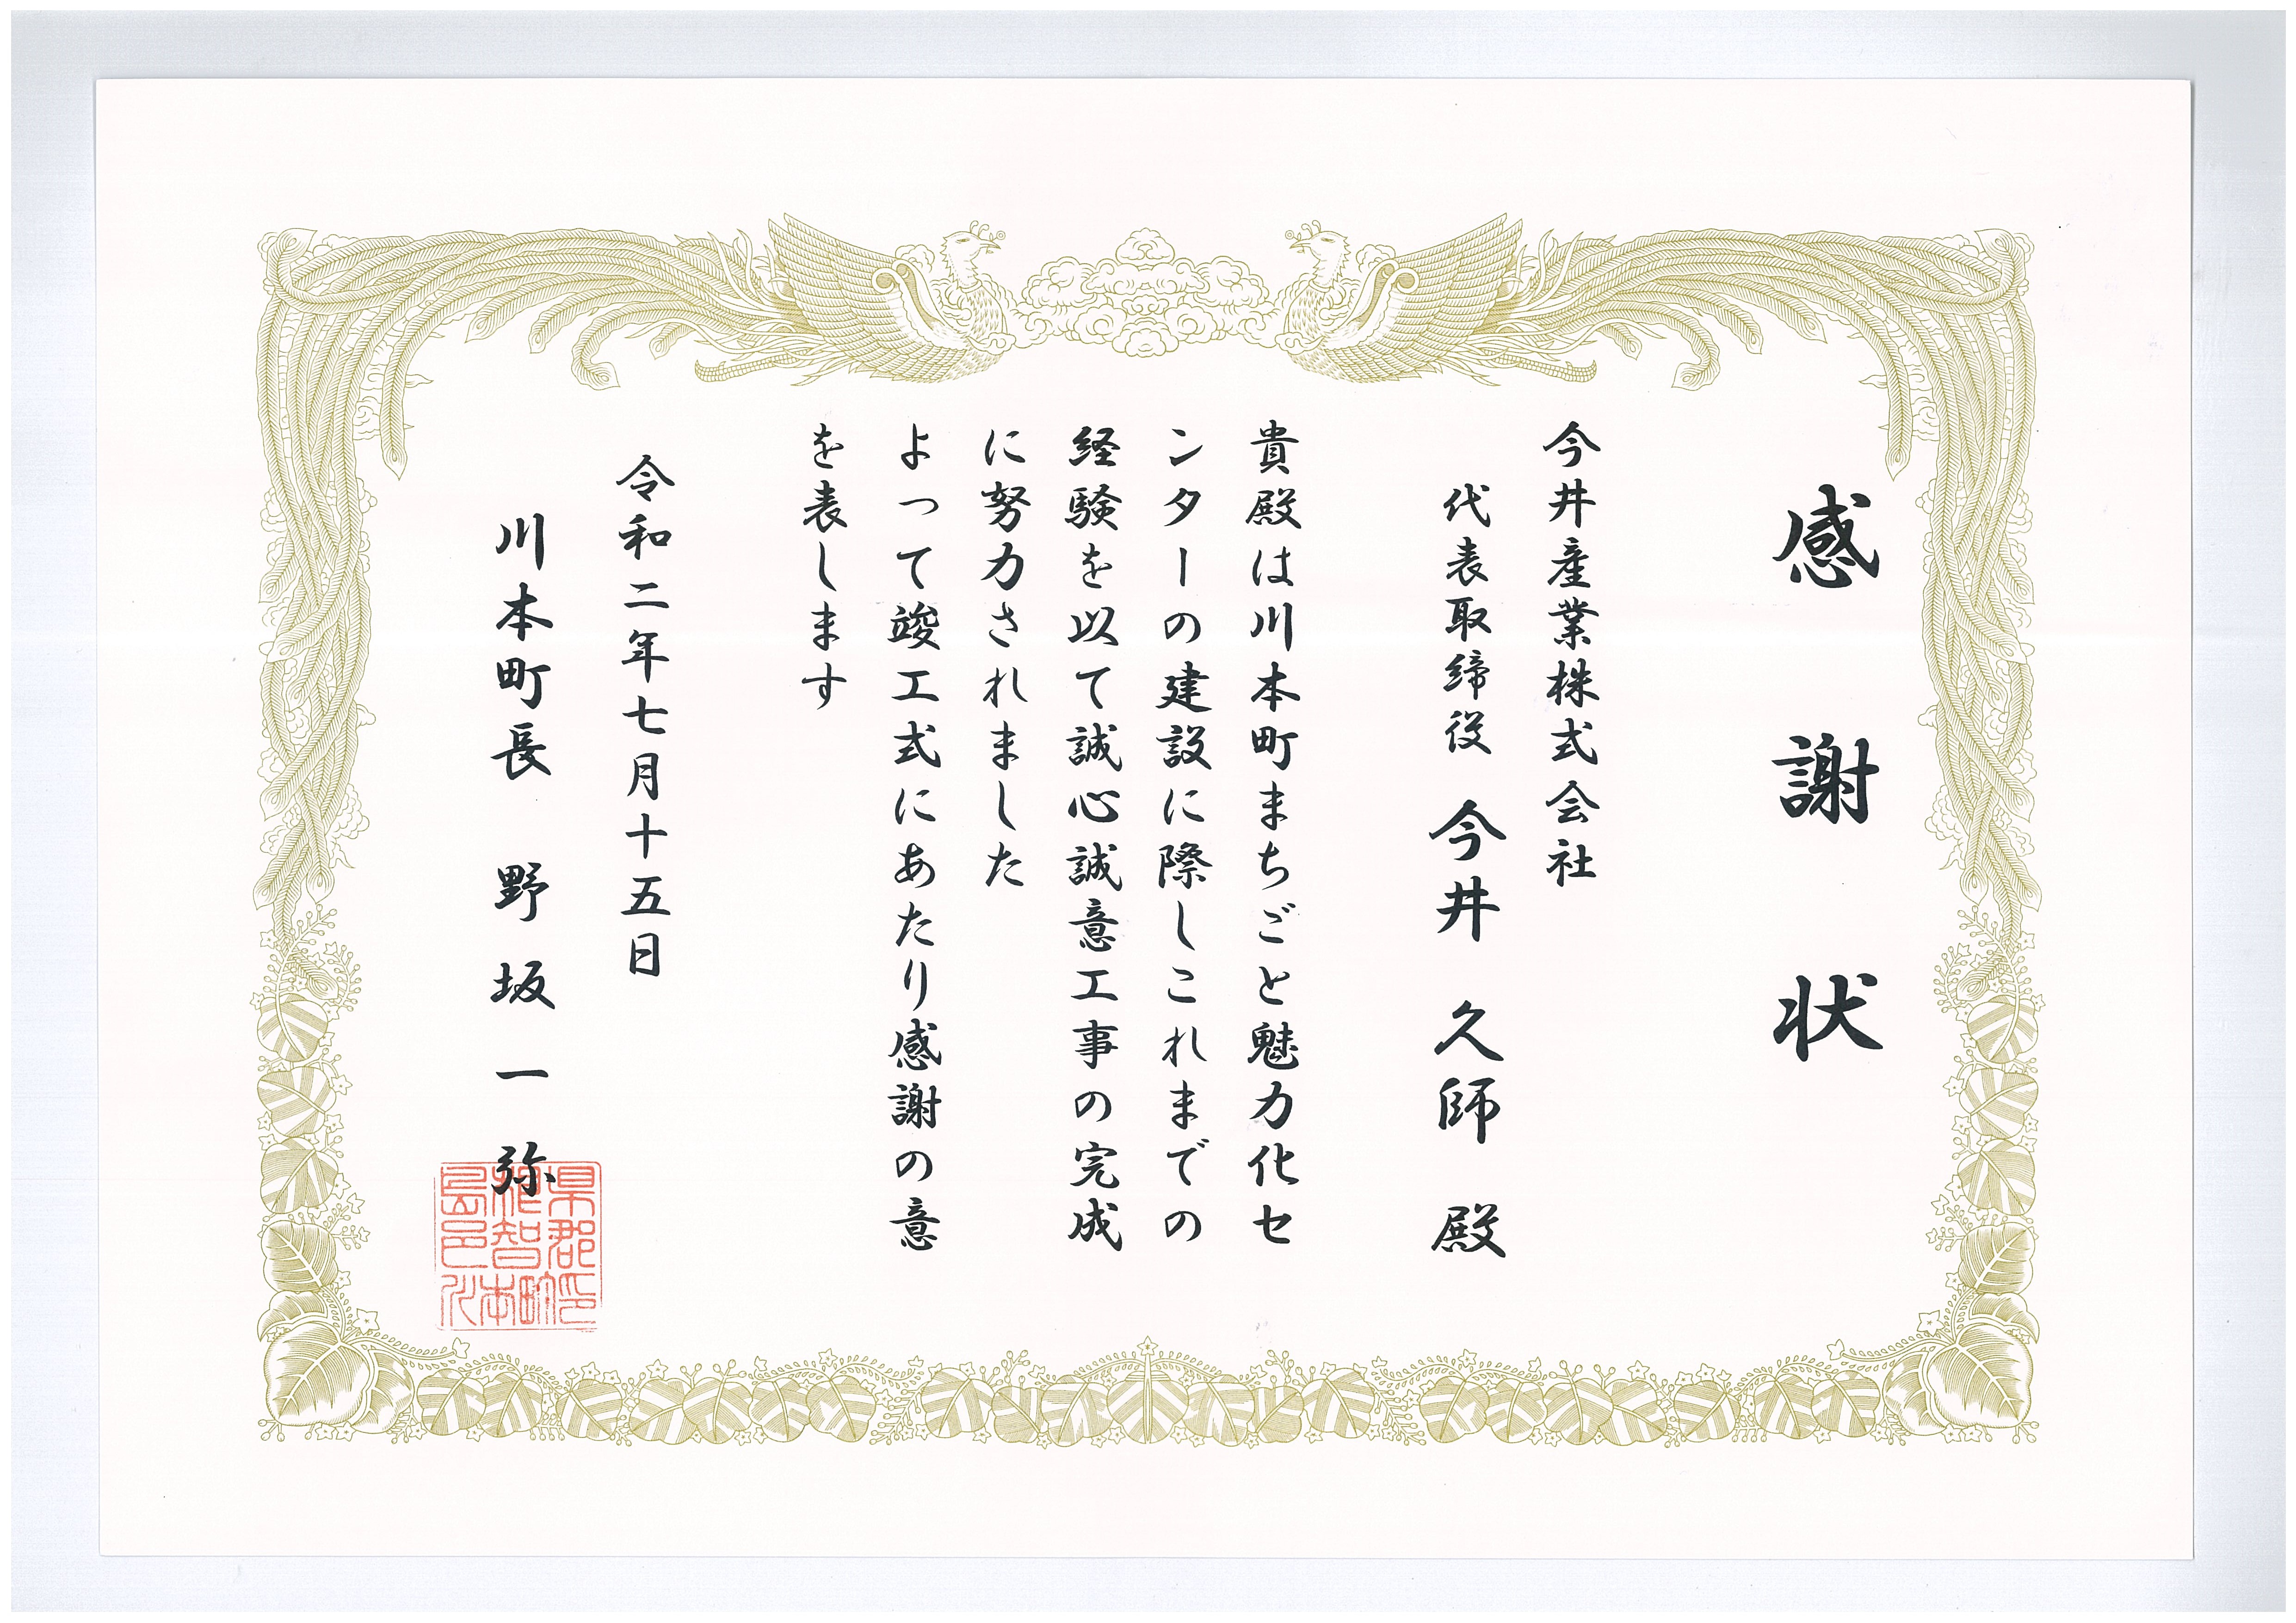 感謝状
今井産業株式会社
代表取締役 今井 久師 殿
貴殿は川本町まちごと魅力化セ
ンターの建設に際しこれまでの
経験を以て誠心誠意工事の完成
に努力されました
よって竣工式にあたり感謝の意
を表します
令和二年七月十五日
川本町長 野坂一弥